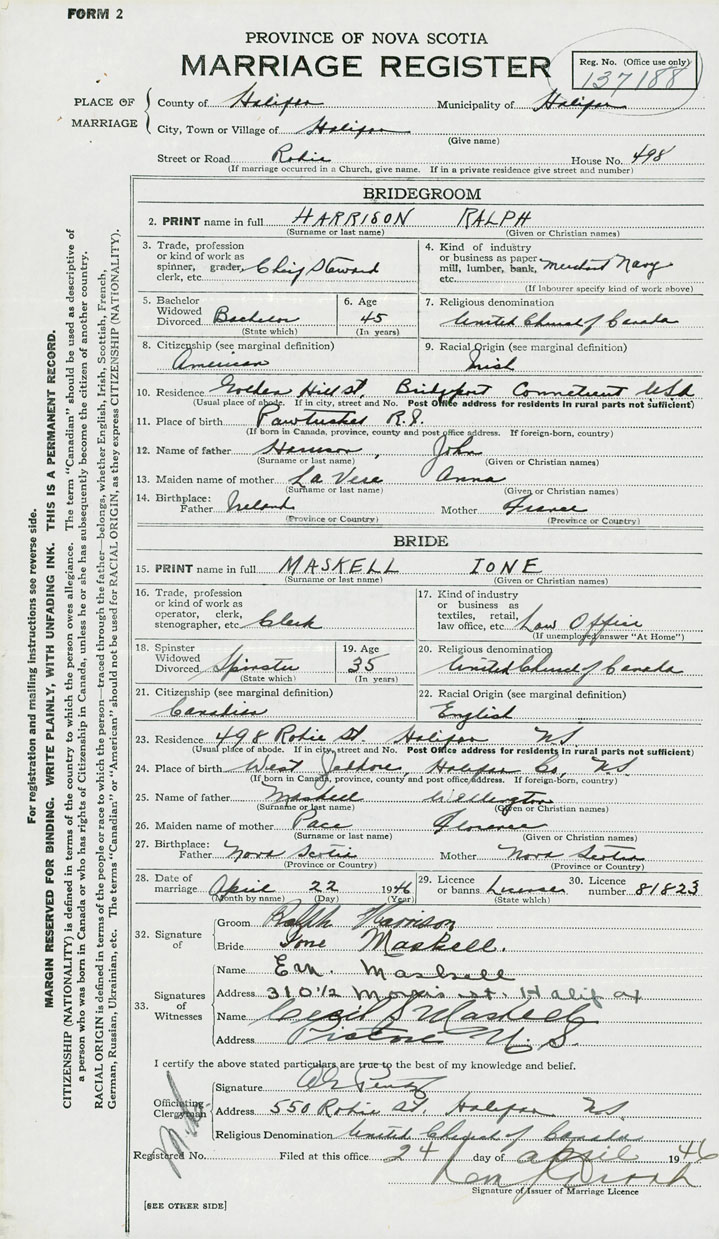 FORM 2
PROVINCE OF NOVA SCOTIA
MARRIAGE REGISTER
Reg. No. (Office use only)
137188
PLACE OF MARRIAGE
County of Halifax Municipality of Halifax
City, Town or Village of Halifax
(Give name)
Street or Road Robie House No. 498
(If marriage occurred in a Church, give name. If in a private residence give street and number)
BRIDEGROOM
2. PRINT name in full HARRISON RALPH
(Surname or last name) (Given or Christian names)
3. Trade, profession or kind of work as spinner, grader, clerk, etc. Chief Steward
4. Kind of industry or business as paper mill, lumber, bank, etc. Merchant Navy
(If labourer specify kind of work above)
5. Bachelor Widowed Divorced Bachelor
(State which)
6. Age 45
(In years)
7. Religious denomination
United Church of Canada
8. Citizenship (see marginal definition)
American
9. Racial Origin (see marginal definition)
Irish
10. Residence Golden Hill St. Bridgeport Connecticut USA
(Usual place of abode. If in city, street and No. Post Office address for residents in rural parts not sufficient)
11. Place of birth Pawtucket R.I.
(If born in Canada, province, county and post office address. If foreign-born, country)
12. Name of father Harrison, John
(Surname or last name) (Given or Christian names)
13. Maiden name of mother La Vere Anna
(Surname or last name) (Given or Christian names)
14. Birthplace: Father Ireland Mother France
(Province or Country) (Province or Country)
BRIDE
15. PRINT name in full MASKELL IONE
(Surname or last name) (Given or Christian names)
16. Trade, profession or kind of work as operator, clerk, stenographer, etc. Clerk
17. Kind of industry or business as textiles, retail, law office, etc. Law Office
(If unemployed answer "At Home")
18. Spinster Widowed Divorced Spinster
(State which)
19. Age 35
(In years)
20. Religious denomination
United Church of Canada
21. Citizenship (see marginal definition)
Canadian
22. Racial Origin (see marginal definition)
English
23. Residence 498 Robie St. Halifax N.S.
(Usual place of abode. If in city, street and No. Post Office address for residents in rural parts not sufficient)
24. Place of birth West Jeddore, Halifax Co, N.S.
(If born in Canada, province, county and post office address. If foreign-born, country)
25. Name of father Maskell Wellington
(Surname or last name) (Given or Christian names)
26. Maiden name of mother Pace Florence
(Surname or last name) (Given or Christian names)
27. Birthplace: Father Nova Scotia Mother Nova Scotia
(Province or Country) (Province or Country)
28. Date of marriage April 22 1946
(Month by name) (Day) (Year)
29. Licence or banns License
(State which)
30. Licence number 81823
32. Signature of
Groom Ralph Harrison
Bride Ione Maskell.
33. Signatures of Witnesses
Name E.M. Maskell
Address 310 1/2 Morris St. Halifax
Name Cecil S Maskell
Address Pictou N.S.
I certify the above stated particulars are true to the best of my knowledge and belief.
Officiating Clergyman
Signature
Address 550 Robie St. Halifax N.S.
Religious Denomination United Church of Canada
Registered No. Filed at this office 24 day of April 1946
Signature of Issuer of Marriage Licence
[SEE OTHER SIDE]
For registration and mailing instructions see reverse side.
MARGIN RESERVED FOR BINDING. WRITE PLAINLY, WITH UNFADING INK. THIS IS A PERMANENT RECORD.
CITIZENSHIP (NATIONALITY) is defined in terms of the country to which the person owes allegiance. The term "Canadian" should be used as descriptive of
a person who was born in Canada or who has rights of Citizenship in Canada, unless he or she has subsequently become the citizen of another country.
RACIAL ORIGIN is defined in terms of the people or race to which the person—traced through the father—belongs, whether English, Irish, Scottish, French,
German, Russian, Ukrainian, etc. The terms "Canadian" or "American" should not be used for RACIAL ORIGIN, as they express CITIZENSHIP (NATIONALITY).